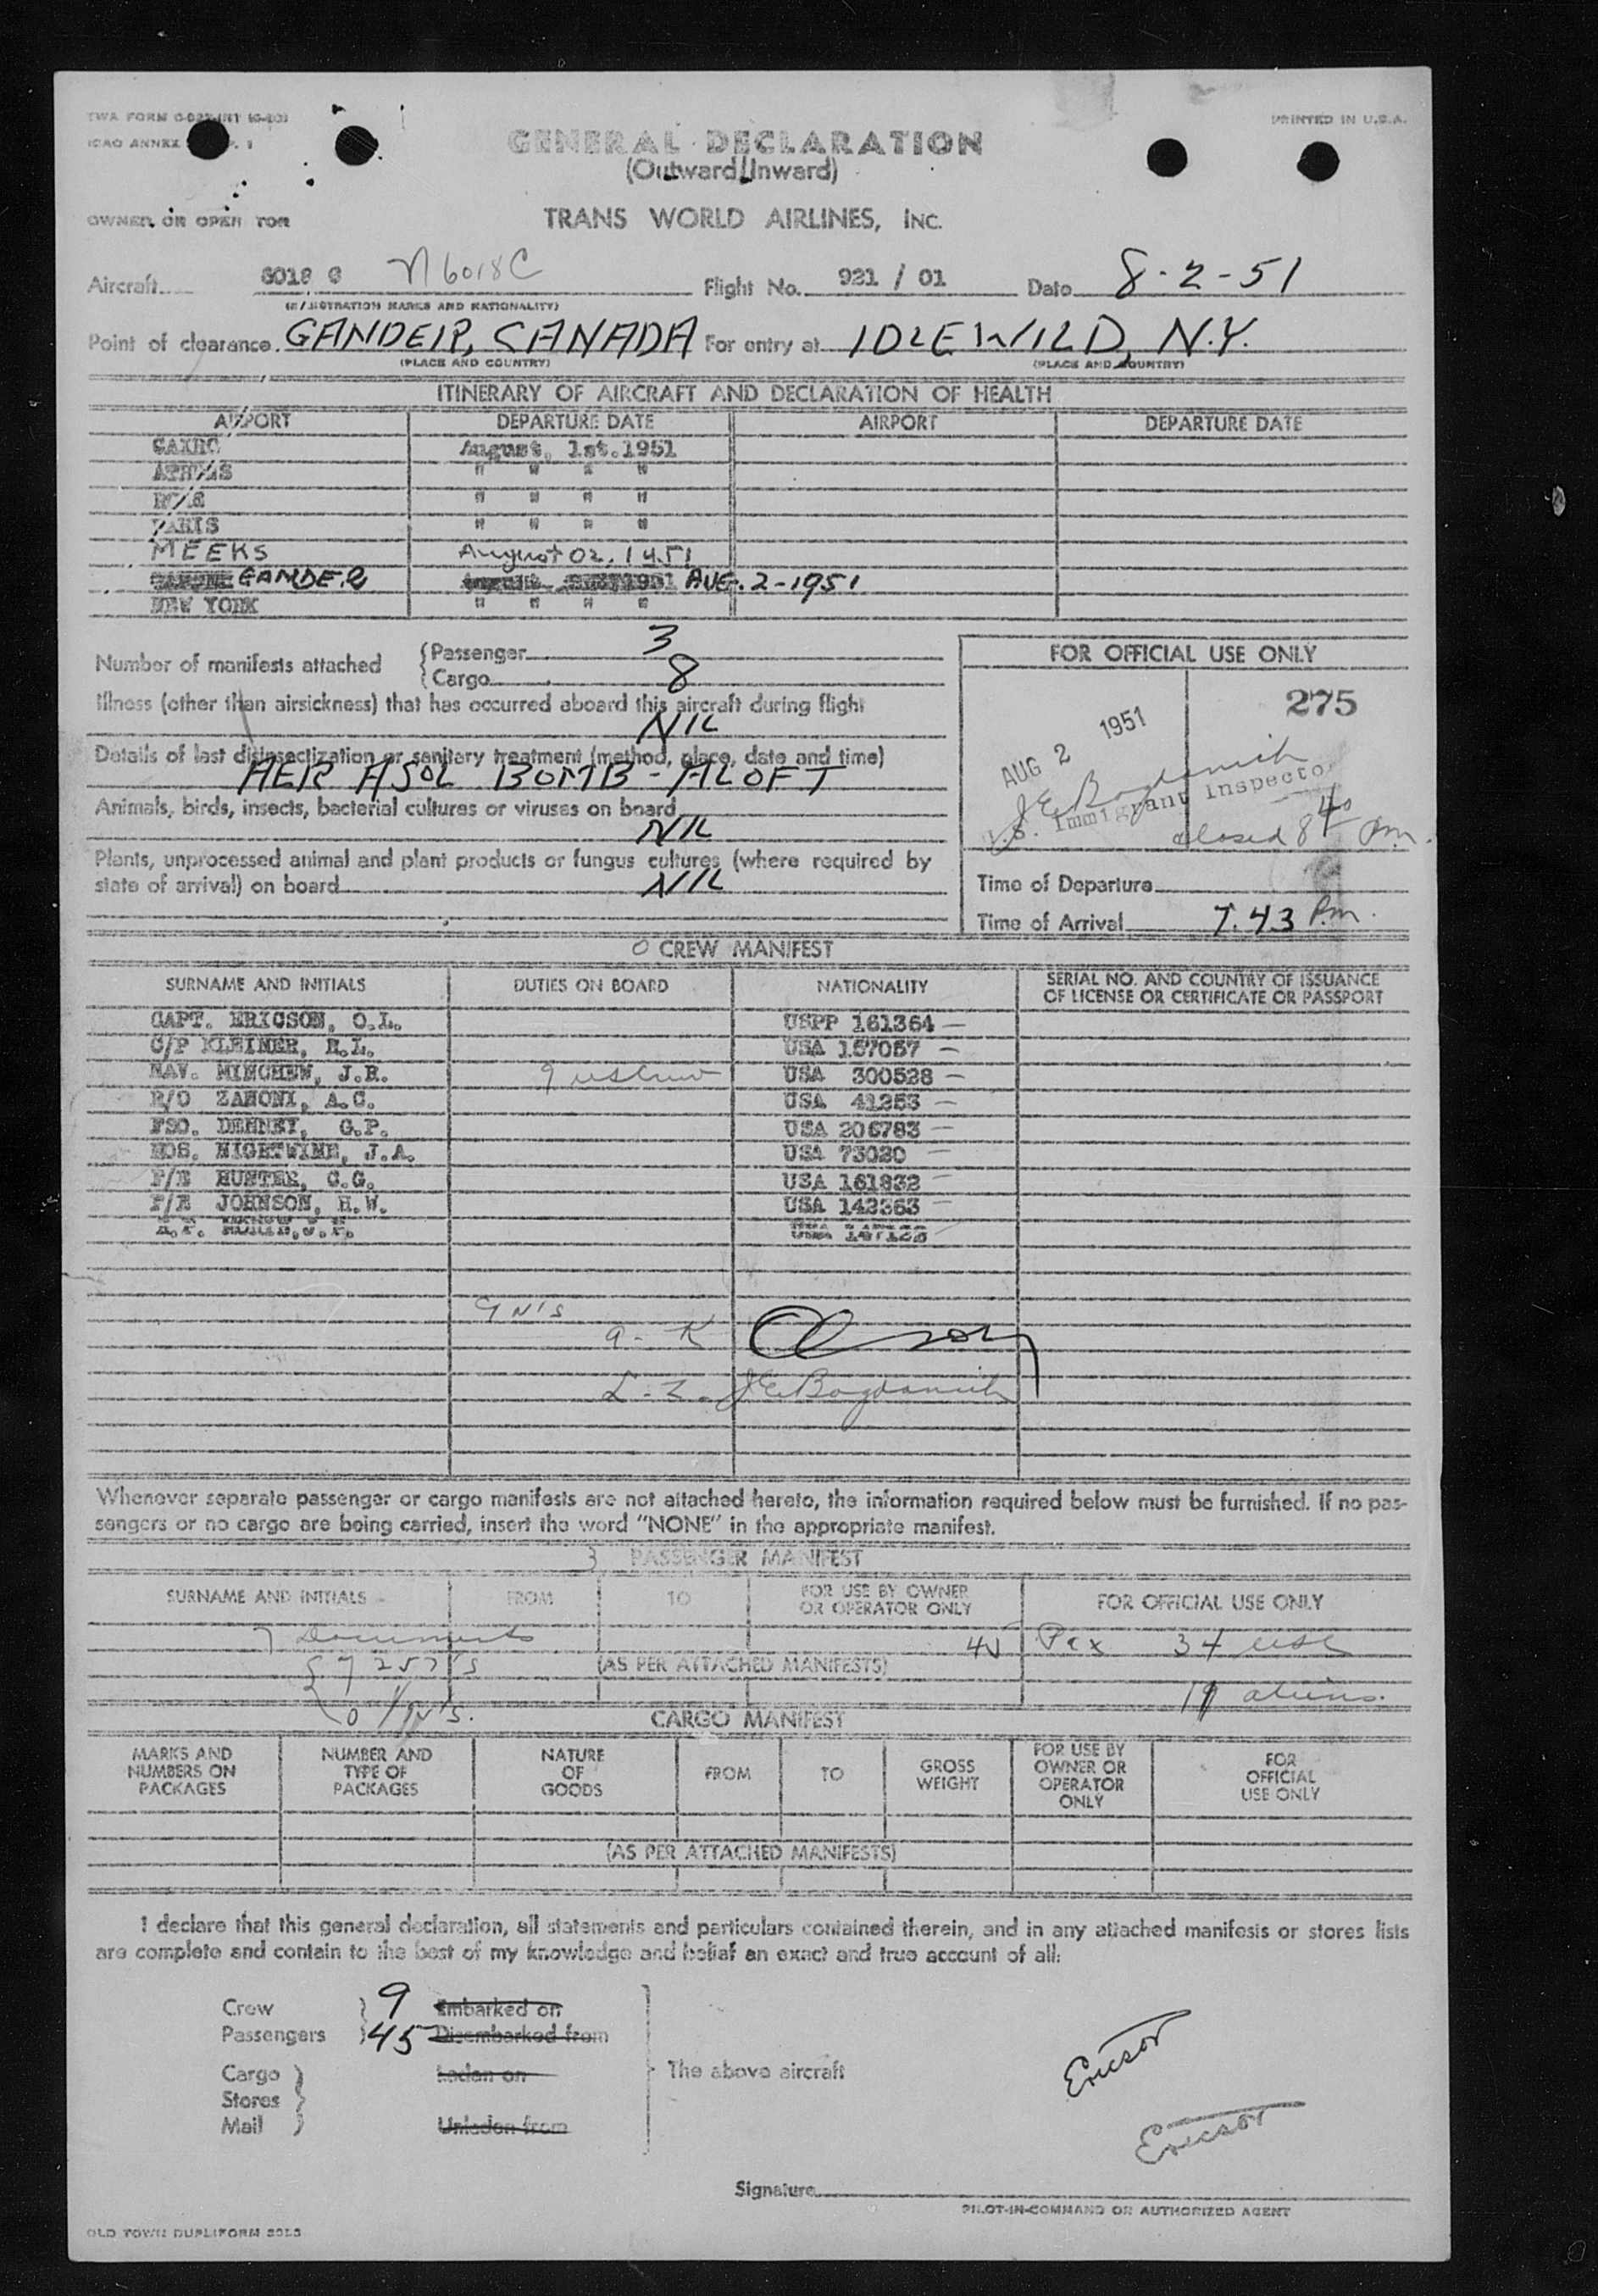 PRINTED IN U.S.A.
ICAO ANNEX
GENERAL DECLARATION
(Outward/Inward)
OWNER OR OPERATOR TRANS WORLD AIRLINES, INC.
Aircraft 6018 C N6018C Flight No. 921 / 01 Date 8-2-51
(REGISTRATION MARKS AND NATIONALITY)
Point of clearance GANDER, CANADA For entry at IDLEWILD, N.Y.
(PLACE AND COUNTRY) (PLACE AND COUNTRY)
ITINERARY OF AIRCRAFT AND DECLARATION OF HEALTH
AIRPORT DEPARTURE DATE AIRPORT DEPARTURE DATE
CAIRO August, 1st.1951
ATHENS " " " "
ROME " " " "
PARIS " " " "
MEEKS August 02, 1951
GANDER AUG. 2-1951
NEW YORK " " " "
Number of manifests attached Passenger 3
Cargo 8
Illness (other than airsickness) that has occurred aboard this aircraft during flight
NIL
Details of last disinsectization or sanitary treatment (method, place, date and time)
AER ASOL BOMB - ALOFT
Animals, birds, insects, bacterial cultures or viruses on board
NIL
Plants, unprocessed animal and plant products or fungus cultures (where required by
state of arrival) on board NIL
FOR OFFICIAL USE ONLY
275
AUG 2 1951
J E Bogdanich
U.S. Immigrant Inspector
closed 8 40 pm.
Time of Departure
Time of Arrival 7.43 P.m.
CREW MANIFEST
SURNAME AND INITIALS DUTIES ON BOARD NATIONALITY SERIAL NO. AND COUNTRY OF ISSUANCE
OF LICENSE OR CERTIFICATE OR PASSPORT
CAPT. ERICSON, O.L. USPP 161364 —
C/P KLEINER, R.L. USA 157057 —
NAV. MINCHEW, J.R. USA 300528 —
R/O ZANONI, A.C. USA 41253 —
FSO. DENNEY, G.P. USA 206783 —
HOS. NIGHTWINE, J.A. USA 73020 —
F/E HUNTER, C.G. USA 161832 —
F/E JOHNSON, H.W. USA 142363 —
USA
J E Bogdanich
Whenever separate passenger or cargo manifests are not attached hereto, the information required below must be furnished. If no pas-
sengers or no cargo are being carried, insert the word "NONE" in the appropriate manifest.
3 PASSENGER MANIFEST
SURNAME AND INITIALS FROM TO FOR USE BY OWNER
OR OPERATOR ONLY FOR OFFICIAL USE ONLY
7 Documents 45 Pax 34 USC
7 257's (AS PER ATTACHED MANIFESTS)
aliens.
CARGO MANIFEST
MARKS AND
NUMBERS ON
PACKAGES NUMBER AND
TYPE OF
PACKAGES NATURE
OF
GOODS FROM TO GROSS
WEIGHT FOR USE BY
OWNER OR
OPERATOR
ONLY FOR
OFFICIAL
USE ONLY
(AS PER ATTACHED MANIFESTS)
I declare that this general declaration, all statements and particulars contained therein, and in any attached manifests or stores lists
are complete and contain to the best of my knowledge and belief an exact and true account of all:
Crew 9 Embarked on
Passengers 45 Disembarked from
Cargo Laden on The above aircraft
Stores
Mail Unladen from
Ericson
Ericson
Signature
PILOT-IN-COMMAND OR AUTHORIZED AGENT
OLD TOWN DUPLIFORM